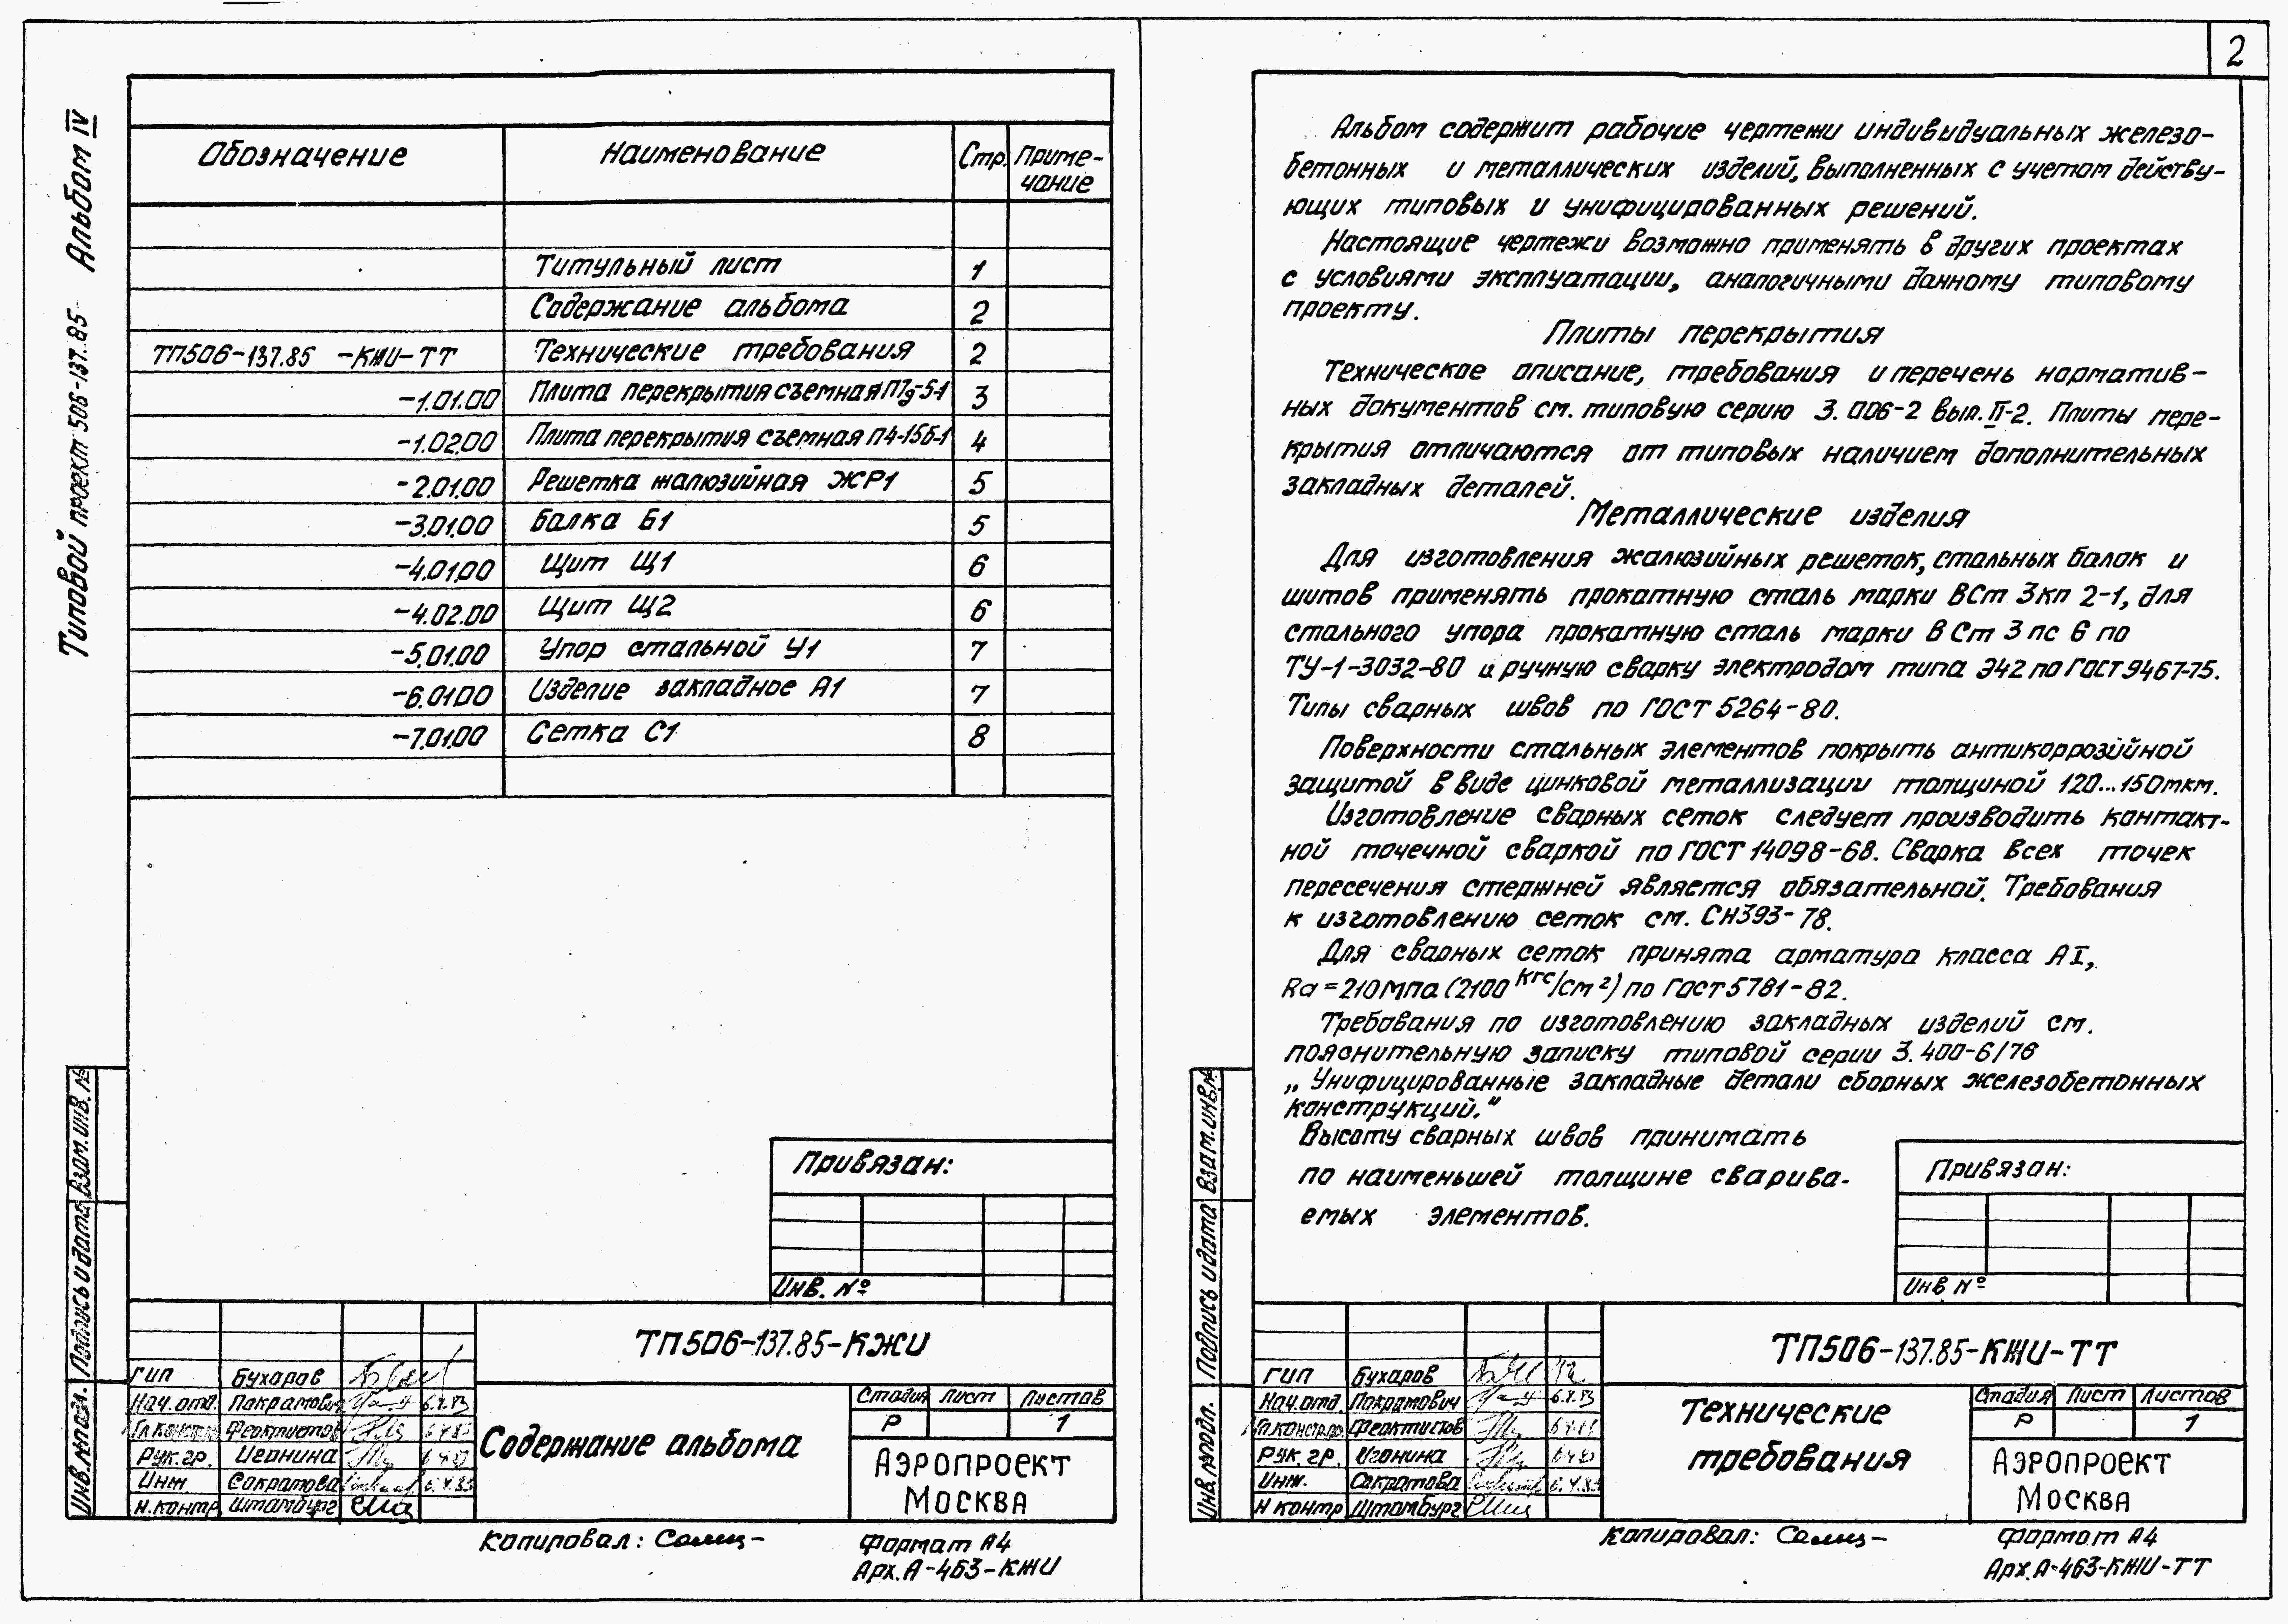 2
Типовой проект 506-137.85 Альбом IV
Обозначение Наименование Стр. Приме-
чание
Титульный лист 1
Содержание альбома 2
ТП506-137.85 -КЖИ-ТТ Технические требования 2
-1.01.00 Плита перекрытия съемная 3
-1.02.00 Плита перекрытия съемная П4-15б-1 4
-2.01.00 Решетка жалюзийная ЖР1 5
-3.01.00 Балка Б1 5
-4.01.00 Щит Щ1 6
-4.02.00 Щит Щ2 6
-5.01.00 Упор стальной У1 7
-6.01.00 Изделие закладное А1 7
-7.01.00 Сетка С1 8
Привязан:
Инв. №
ТП506-137.85-КЖИ
ГИП Бухаров
Нач.отд. Покрамович
Гл.констр. Феоктистов
Рук.гр. Игонина
Инж Сократова
Н.контр Штамбург
Содержание альбома
Стадия Лист Листов
Р 1
АЭРОПРОЕКТ
МОСКВА
Взам.инв.№
Подпись и дата
Инв.№подл.
Копировал:
Формат А4
Арх.А-463-КЖИ
Альбом содержит рабочие чертежи индивидуальных железо-
бетонных и металлических изделий, выполненных с учетом действу-
ющих типовых и унифицированных решений.
Настоящие чертежи возможно применять в других проектах
с условиями эксплуатации, аналогичными данному типовому
проекту.
Плиты перекрытия
Техническое описание, требования и перечень норматив-
ных документов см. типовую серию 3.006-2 вып. II-2. Плиты пере-
крытия отличаются от типовых наличием дополнительных
закладных деталей.
Металлические изделия
Для изготовления жалюзийных решеток, стальных балок и
щитов применять прокатную сталь марки ВСт 3кп 2-1, для
стального упора прокатную сталь марки В Ст 3 пс 6 по
ТУ-1-3032-80 и ручную сварку электродом типа Э42 по ГОСТ 9467-75.
Типы сварных швов по ГОСТ 5264-80.
Поверхности стальных элементов покрыть антикоррозийной
защитой в виде цинковой металлизации толщиной 120...150мкм.
Изготовление сварных сеток следует производить контакт-
ной точечной сваркой по ГОСТ 14098-68. Сварка всех точек
пересечения стержней является обязательной. Требования
к изготовлению сеток см. СН393-78.
Для сварных сеток принята арматура класса АI,
Ra=210МПа (2100 кгс/см²) по ГОСТ 5781-82.
Требования по изготовлению закладных изделий см.
пояснительную записку типовой серии 3.400-6/76
„Унифицированные закладные детали сборных железобетонных
конструкций."
Высоту сварных швов принимать
по наименьшей толщине сварива-
емых элементов.
Привязан:
Инв №
ТП506-137.85-КЖИ-ТТ
ГИП Бухаров
Нач.отд. Покрамович
Гл.констр. Феоктистов
Рук.гр. Игонина
Инж. Сократова
Н контр Штамбург
Технические
требования
Стадия Лист Листов
Р 1
АЭРОПРОЕКТ
МОСКВА
Взам.инв.№
Подпись и дата
Инв.№подл.
Копировал:
Формат А4
Арх.А-463-КЖИ-ТТ